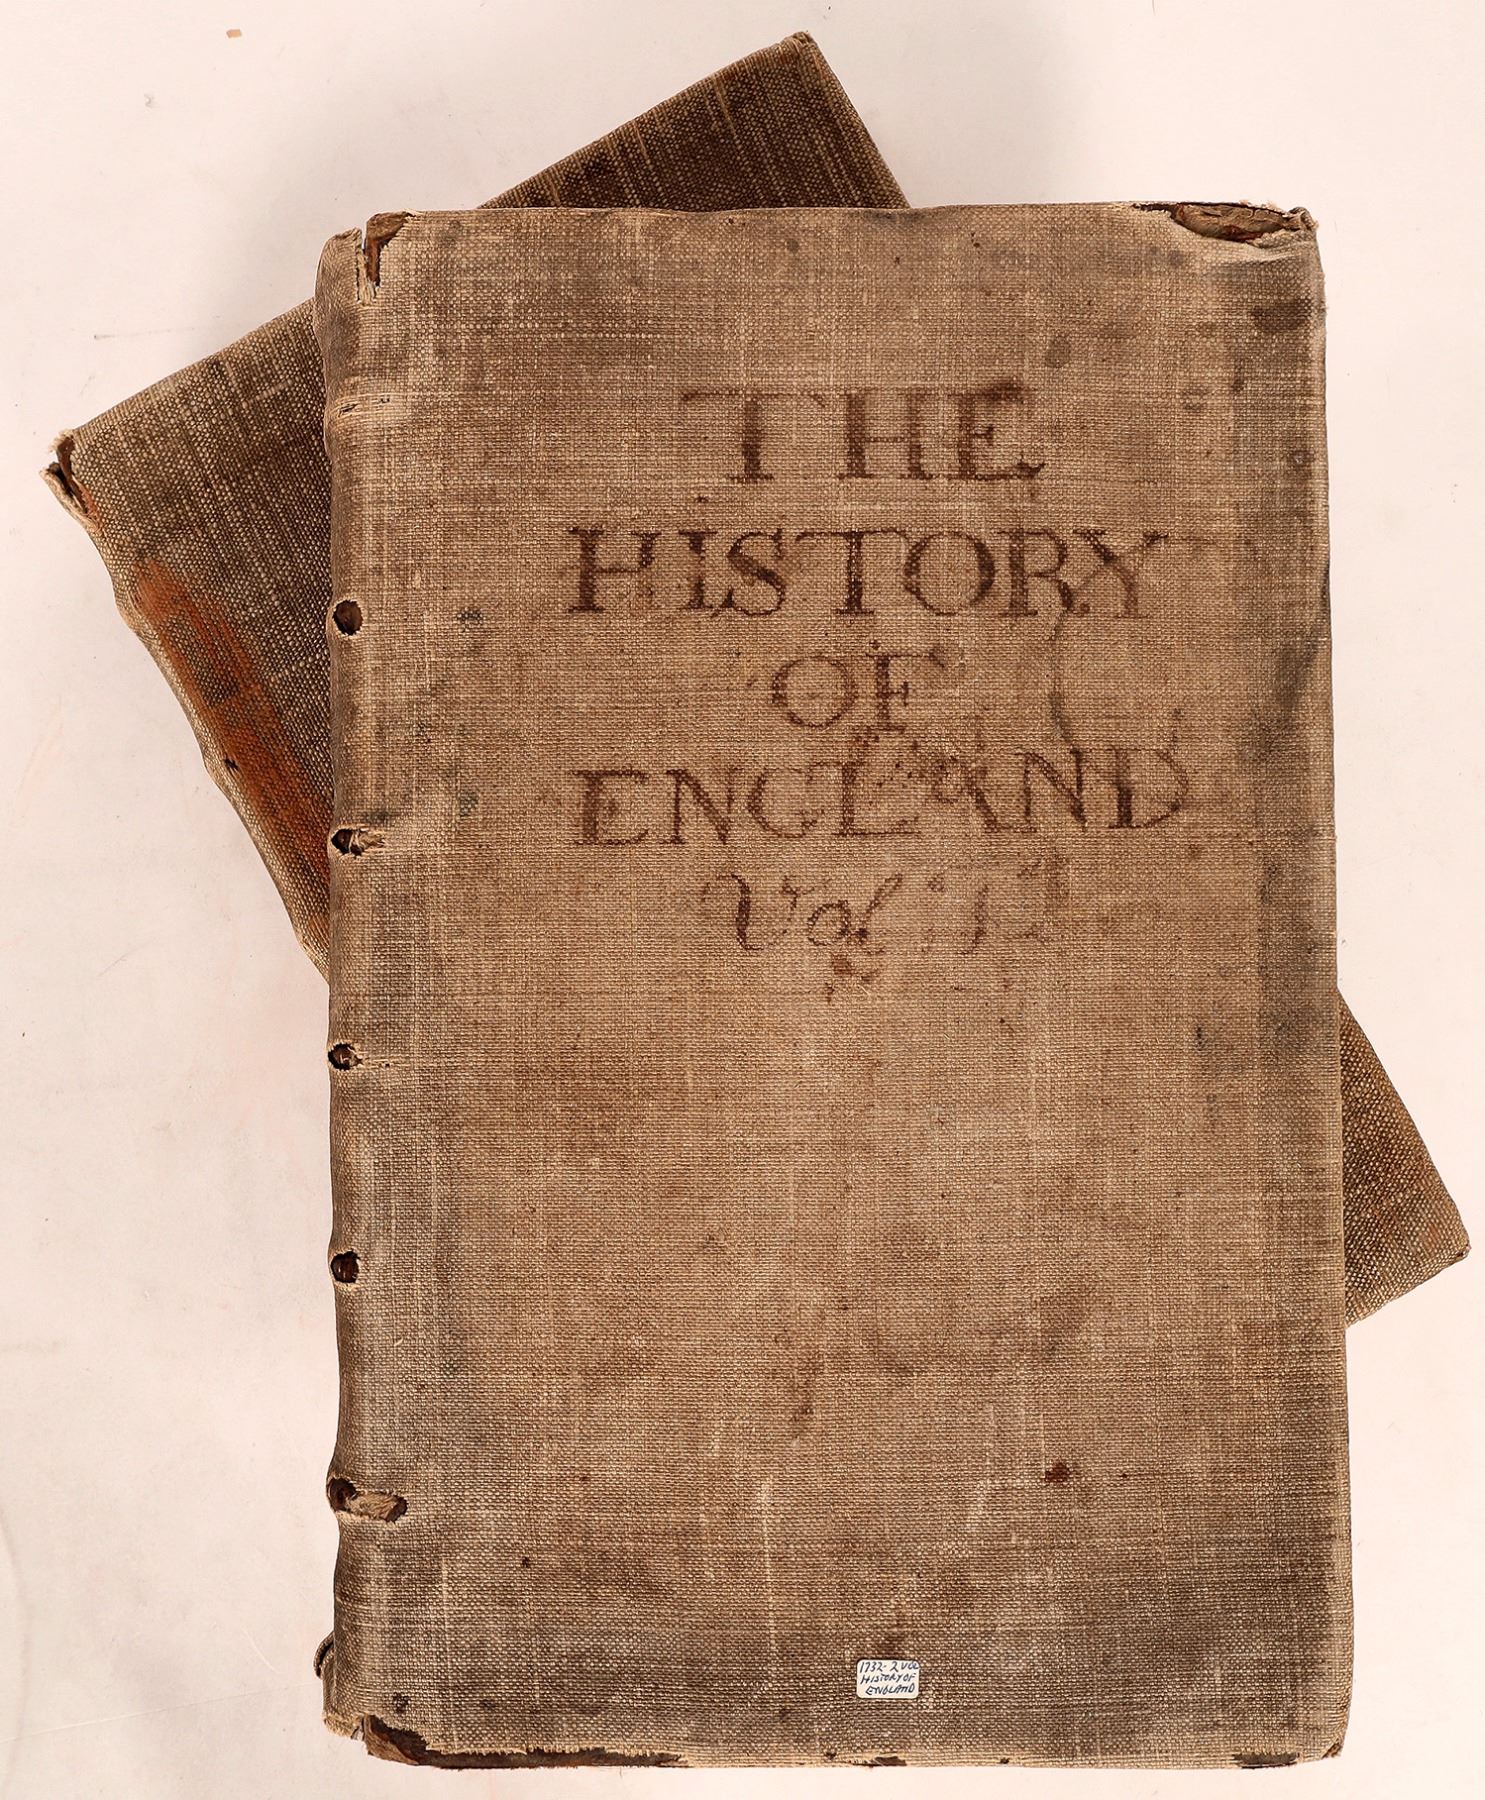 THE
HISTORY
OF
ENGLAND
Vol
1732-2 VOL
HISTORY OF
ENGLAND